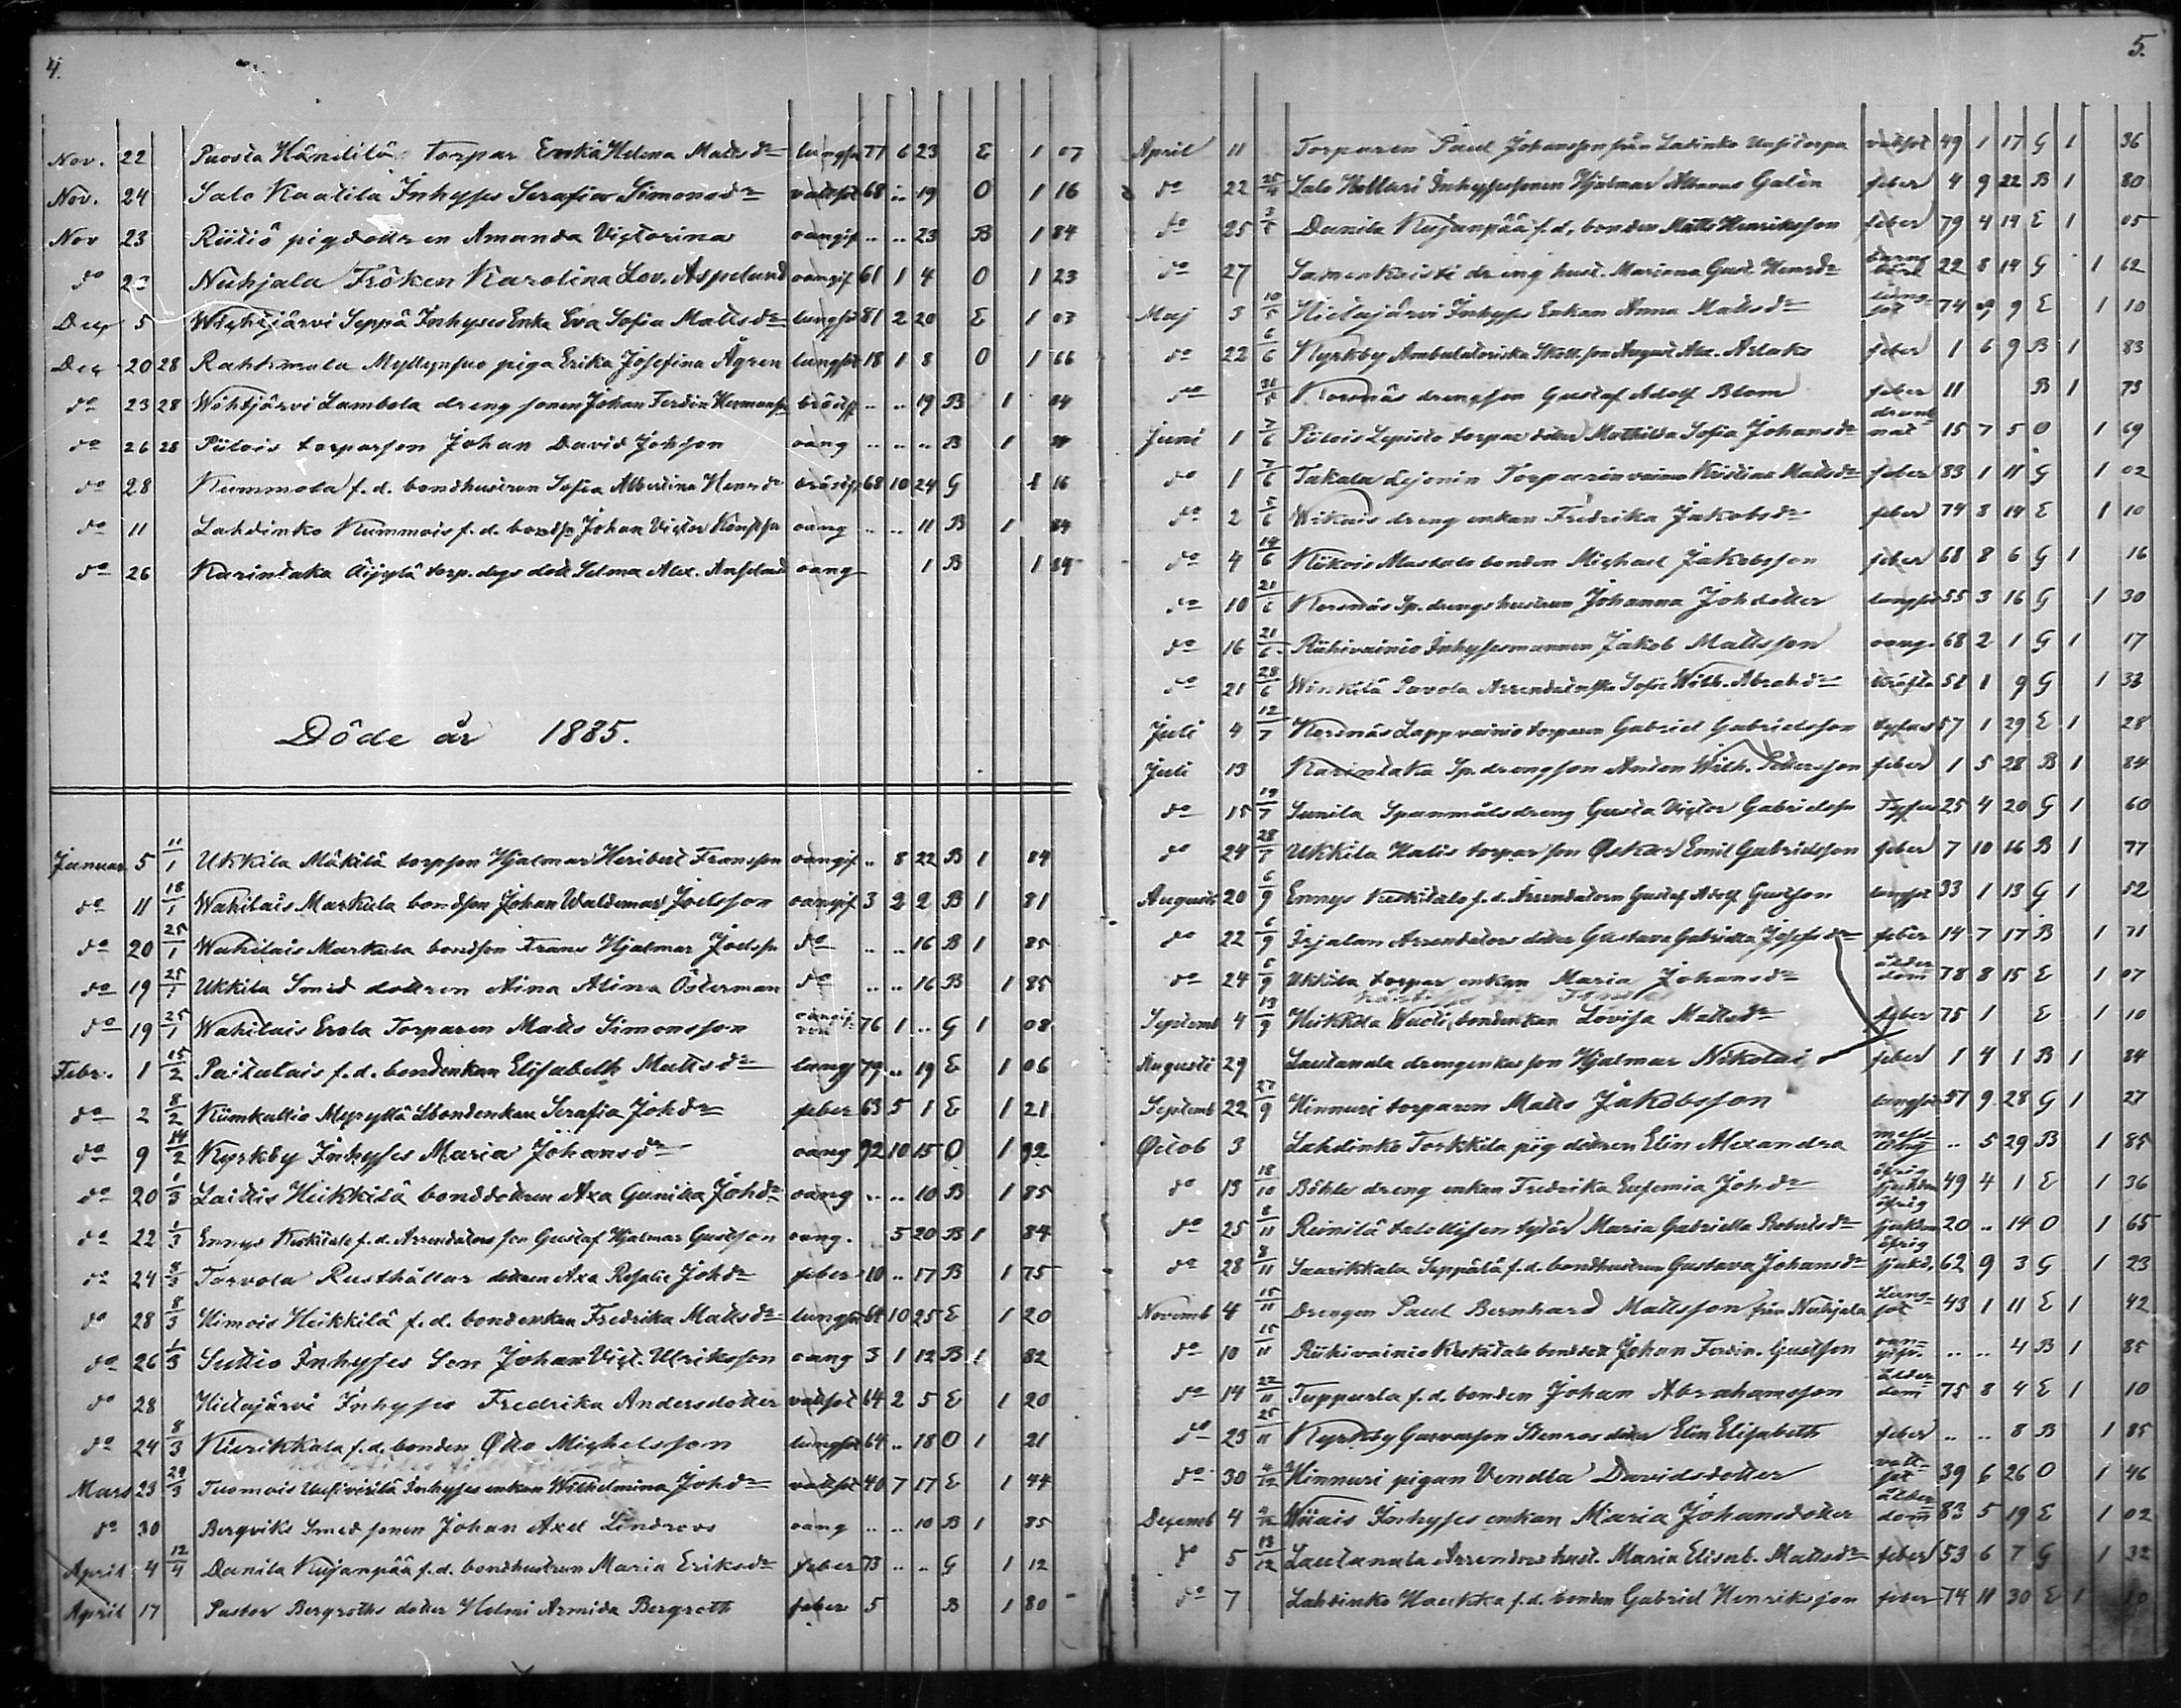 4.
Nov. 22 Puosta Hänililä torpar Enka Helena Matts dr lungs 77 6 23 E 1 07
Nov. 24 Salo Kaatila Inhyses Serafia Simonsdr vattsot 68 .. 19 O 1 16
Nov 23 Riitiö pigdottren Amanda Victorina oangif .. .. 23 B 1 84
do 23 Nuhjala Fröken Karolina Lov. Aspelund oangif 61 1 4 O 1 23
Dec 5 Wehtjärvi Seppä Inhyses Enka Eva Sofia Mattsdr lungsot 81 2 20 E 1 03
Dec 20 28 Rahkmala Myllynsuo piga Erika Josefina Ågren lungsot 18 1 8 O 1 66
do 23 28 Wehtjärvi Lambola dreng sonen Johan Ferdin Hermansson bröstf .. .. 19 B 1 84
do 26 28 Piilois torparson Johan David Johsson oang .. .. .. B 1
do 28 Kummola f.d. bondhustrun Sofia Albertina Henrsdr bröstf 68 10 24 G 1 16
do 11 Lahdinko Kummois f.d. bondsn Johan Victor oang .. .. 11 B 1 84
do 26 Karintaka Äijylä torp. dogs dott Selma Alex. oang 1 B 1 84
Döde år 1885.
Januar 5 11/1 Ukkila Mäkilä torpson Hjalmar Heribert Fransson oangif .. 8 22 B 1 84
do 11 18/1 Wahilais Markula bondson Johan Waldemar Joelsson oangif 3 2 2 B 1 81
do 20 25/1 Wahilais Markula bondson Frans Hjalmar Joelss do .. .. 16 B 1 85
do 19 25/1 Ukkila Smed dottren Aina Alina Österman do .. .. 16 B 1 85
do 19 25/1 Wahilais Erola Torparen Matts Simonsson 76 1 .. G 1 08
Febr. 1 15/2 Paitalais f.d. bondenkan Elisabeth Mattsdr lung 79 .. 19 E 1 06
do 2 8/2 Kiimkallio Myryllä bondenkan Serafia Johdr feber 63 5 1 E 1 21
do 9 14/2 Kyrkby Inhyses Maria Johansdr oang 92 10 15 O 1 92
do 20 1/3 Laitis Heikkilä bonddottren Axa Gunilla Johdr oang .. .. 10 B 1 85
do 22 1/3 Ennys Keskitalo f.d. Arrendators son Gustaf Hjalmar Gustfson oang. 5 20 B 1 84
do 24 8/3 Torvola Rusthållar dottren Axa Rosalie Johdr feber 10 .. 17 B 1 75
do 28 8/3 Himois Heikkilä f.d. bondenkan Fredrika Mattsdr lungsot 64 10 25 E 1 20
do 26 1/3 Suttio Inhyses Son Johan Vict. Ulriksson oang 3 1 12 B 1 82
do 28 Hietajärvi Inhyses Fredrika Andersdotter vattsot 64 2 5 E 1 20
do 24 8/3 Kierikkala f.d. bonden Otto Michelsson lungsot 64 .. 18 O 1 21
Mars 23 29/3 Tuomois Inhyses enkan Wilhelmina Johdr vattsot 40 7 17 E 1 44
do 30 Bergviks Smed sonen Johan Axel Lindroos oang .. .. 10 B 1 85
April 4 12/4 Danila Kujanpää f.d. bondhustrun Maria Eriksdr feber 73 .. .. G 1 12
April 17 Pastor Bergroths dotter Helmi Armida Bergroth feber 5 B 1 80
5.
April 11 Torparen Paul Johansson från Ladinko Uusitorpa vattsot 49 1 17 G 1 36
do 22 25/4 Salo Hollari Inhysessonen Hjalmar Albanus Galen feber 4 9 22 B 1 80
do 25 3/5 Danila Kujanpää f.d. bonden Matts Henriksson feber 79 4 14 E 1 05
do 27 dreng hust. Mariana Gust. Henrsdr barns börd 22 8 14 G 1 62
Maj 3 10/5 Hietajärvi Inhyses Enkan Anna Mattsdr lungsot 74 9 9 E 1 10
do 22 6/6 Kyrkby Ambulatoriska Skoll. son August Alex. feber 1 6 9 B 1 83
do 31/5 Korsnäs drengson Gustaf Adolf Blom feber 11 B 1 73
Juni 1 7/6 Piilois Lepistö torpar dotter Mathilda Sofia Johansdr drunknat 15 7 5 O 1 69
do 1 7/6 Takala Torparinvaina Kristina Mattsdr feber 83 1 11 G 1 02
do 2 5/6 Wikais dreng enkan Fredrika Jakobsdr feber 74 8 14 E 1 10
do 4 14/6 Kiikois Mastalo bonden Michael Jakobsson feber 68 8 6 G 1 16
do 10 21/6 Korsnäs Sp. drengs hustrun Johanna Johdotter lungsot 55 3 16 G 1 30
do 16 21/6 Riihivainio Inhysesmannen Jakob Mattsson oang. 68 2 1 G 1 17
do 21 28/6 Winkilä Pavola Sofia Wilh. Abrahdr kräfta 51 1 9 G 1 33
Juli 4 12/7 Korsnäs Lappvainio torparen Gabriel Gabrielsson tyfus 57 1 29 E 1 28
Juli 13 Karintaka Sp. drengson Anton Wilh. Pettersson feber 1 5 28 B 1 84
do 15 19/7 Sunila Spanmåls dreng Gusta Victor Gabrielsn Tyfus 25 4 20 G 1 60
do 24 28/7 Ukkila Halis torpar son Oskar Emil Gabrielsson feber 7 10 16 B 1 77
Augusti 20 6/9 Ennys Keskitalo f.d. Arrendatorn Gustaf Adolf Gustfson lungsot 33 1 13 G 1 52
do 22 6/9 Irjalan Arrendators dotter Gustava Gabriella Josefsdr feber 14 7 17 B 1 71
do 24 6/9 Ukkila torpar enkan Maria Johansdr ålderdom 78 8 15 E 1 07
Septemb 4 13/9 Heikkilä bondenkan Lovisa Mattsdr feber 75 1 E 1 10
Augusti 29 Lautanala drengenkas son Hjalmar Nikolai feber 1 4 1 B 1 84
Septemb 22 27/9 Hinnuri torparen Matts Jakobsson lungsot 57 9 28 G 1 27
Octob 3 Lahdinko Torkkila pig dottren Elin Alexandra messling .. 5 29 B 1 85
do 13 18/10 Böhle dreng enkan Fredrika Eufemia Johdr öfrig sjukdom 49 4 1 E 1 36
do 25 8/11 Reinilä Maria Gabriella Robertsdr öfrig sjukdom 20 .. 14 O 1 65
do 28 8/11 Saarikkala Seppälä f.d. bondhustrun Gustava Johansdr öfrig sjukd. 62 9 3 G 1 23
Novemb 4 15/11 Drengen Paul Bernhard Mattsson från Nuhjala Lungsot 43 1 11 E 1 42
do 10 15/11 Riihivainio Keskitalo Johan Ferdin. Gustfson oangifv. .. .. 4 B 1 85
do 14 22/11 Tuppurla f.d. bonden Johan Abrahamsson ålderdom 75 8 4 E 1 10
do 23 25/11 Kyrkby Garvarson Stenros dotter Elin Elisabeth feber .. .. 8 B 1 85
do 30 4/12 Hinnuri pigan Vendla Davidsdotter vattsot 39 6 26 O 1 46
Decemb 4 4/12 Wiiais Inhyses enkan Maria Johansdotter ålderdom 83 5 19 E 1 02
do 5 13/12 Lautanala Arrendors hust. Maria Elisab. Mattsdr feber 53 6 7 G 1 32
do 7 Lahdinko Haukka f.d. bonden Gabriel Henriksson feber 74 11 30 E 1 10